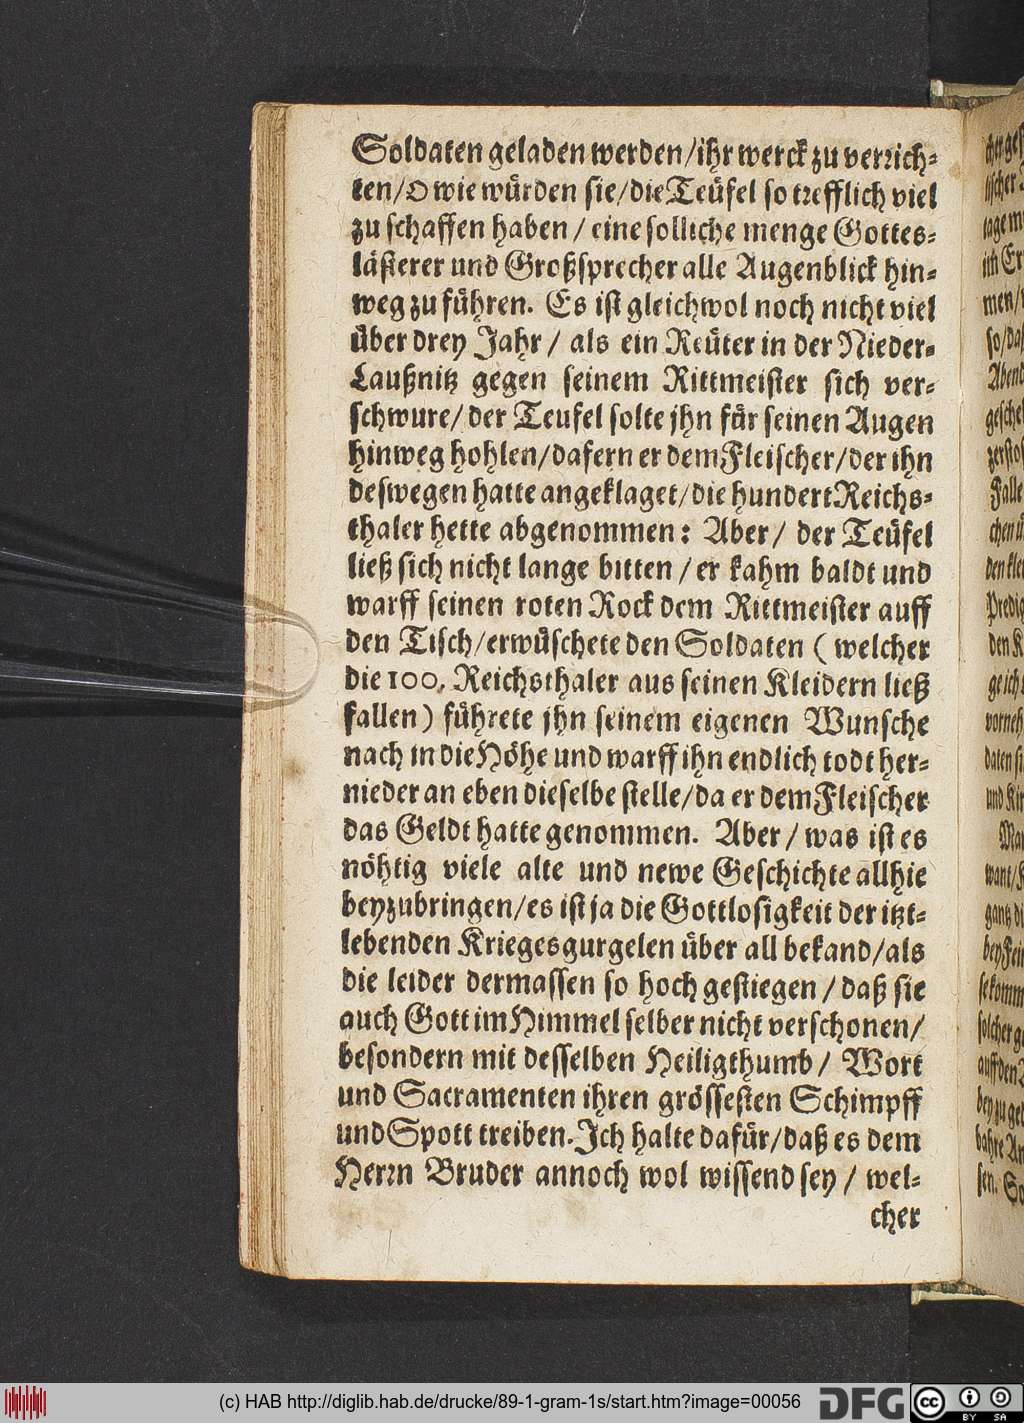 Soldaten geladen werden/ihr werck zu verrich-
ten/O wie würden sie/die Teüfel so trefflich viel
zu schaffen haben / eine solliche menge Gottes-
läßterer und Großsprecher alle Augenblick hin-
weg zu führen. Es ist gleichwol noch nicht viel
über drey Jahr / als ein Reüter in der Nieder-
Laußnitz gegen seinem Rittmeister sich ver-
schwure/ der Teufel solte jhn für seinen Augen
hinweg hohlen/dafern er dem Fleischer/der ihn
deswegen hatte angeklaget/die hundert Reichs-
thaler hette abgenommen: Aber/ der Teüfel
ließ sich nicht lange bitten / er kahm baldt und
warff seinen roten Rock dem Rittmeister auff
den Tisch/erwüschete den Soldaten ( welcher
die 100. Reichsthaler aus seinen Kleidern ließ
fallen) führete jhn seinem eigenen Wunsche
nach in die Höhe und warff ihn endlich todt her-
nieder an eben dieselbe stelle/da er dem Fleischer
das Geldt hatte genommen. Aber / was ist es
nöhtig viele alte und newe Geschichte allhie
beyzubringen/es ist ja die Gottlosigkeit der itzt-
lebenden Kriegesgurgelen über all bekand/als
die leider dermassen so hoch gestiegen / daß sie
auch Gott im Himmel selber nicht verschonen/
besondern mit desselben Heiligthumb/ Wort
und Sacramenten ihren grössesten Schimpff
und Spott treiben. Ich halte dafür/daß es dem
Herrn Bruder annoch wol wissend sey / wel-
cher
(c) HAB http://diglib.hab.de/drucke/89-1-gram-1s/start.htm?image=00056
DFG
cc BY SA